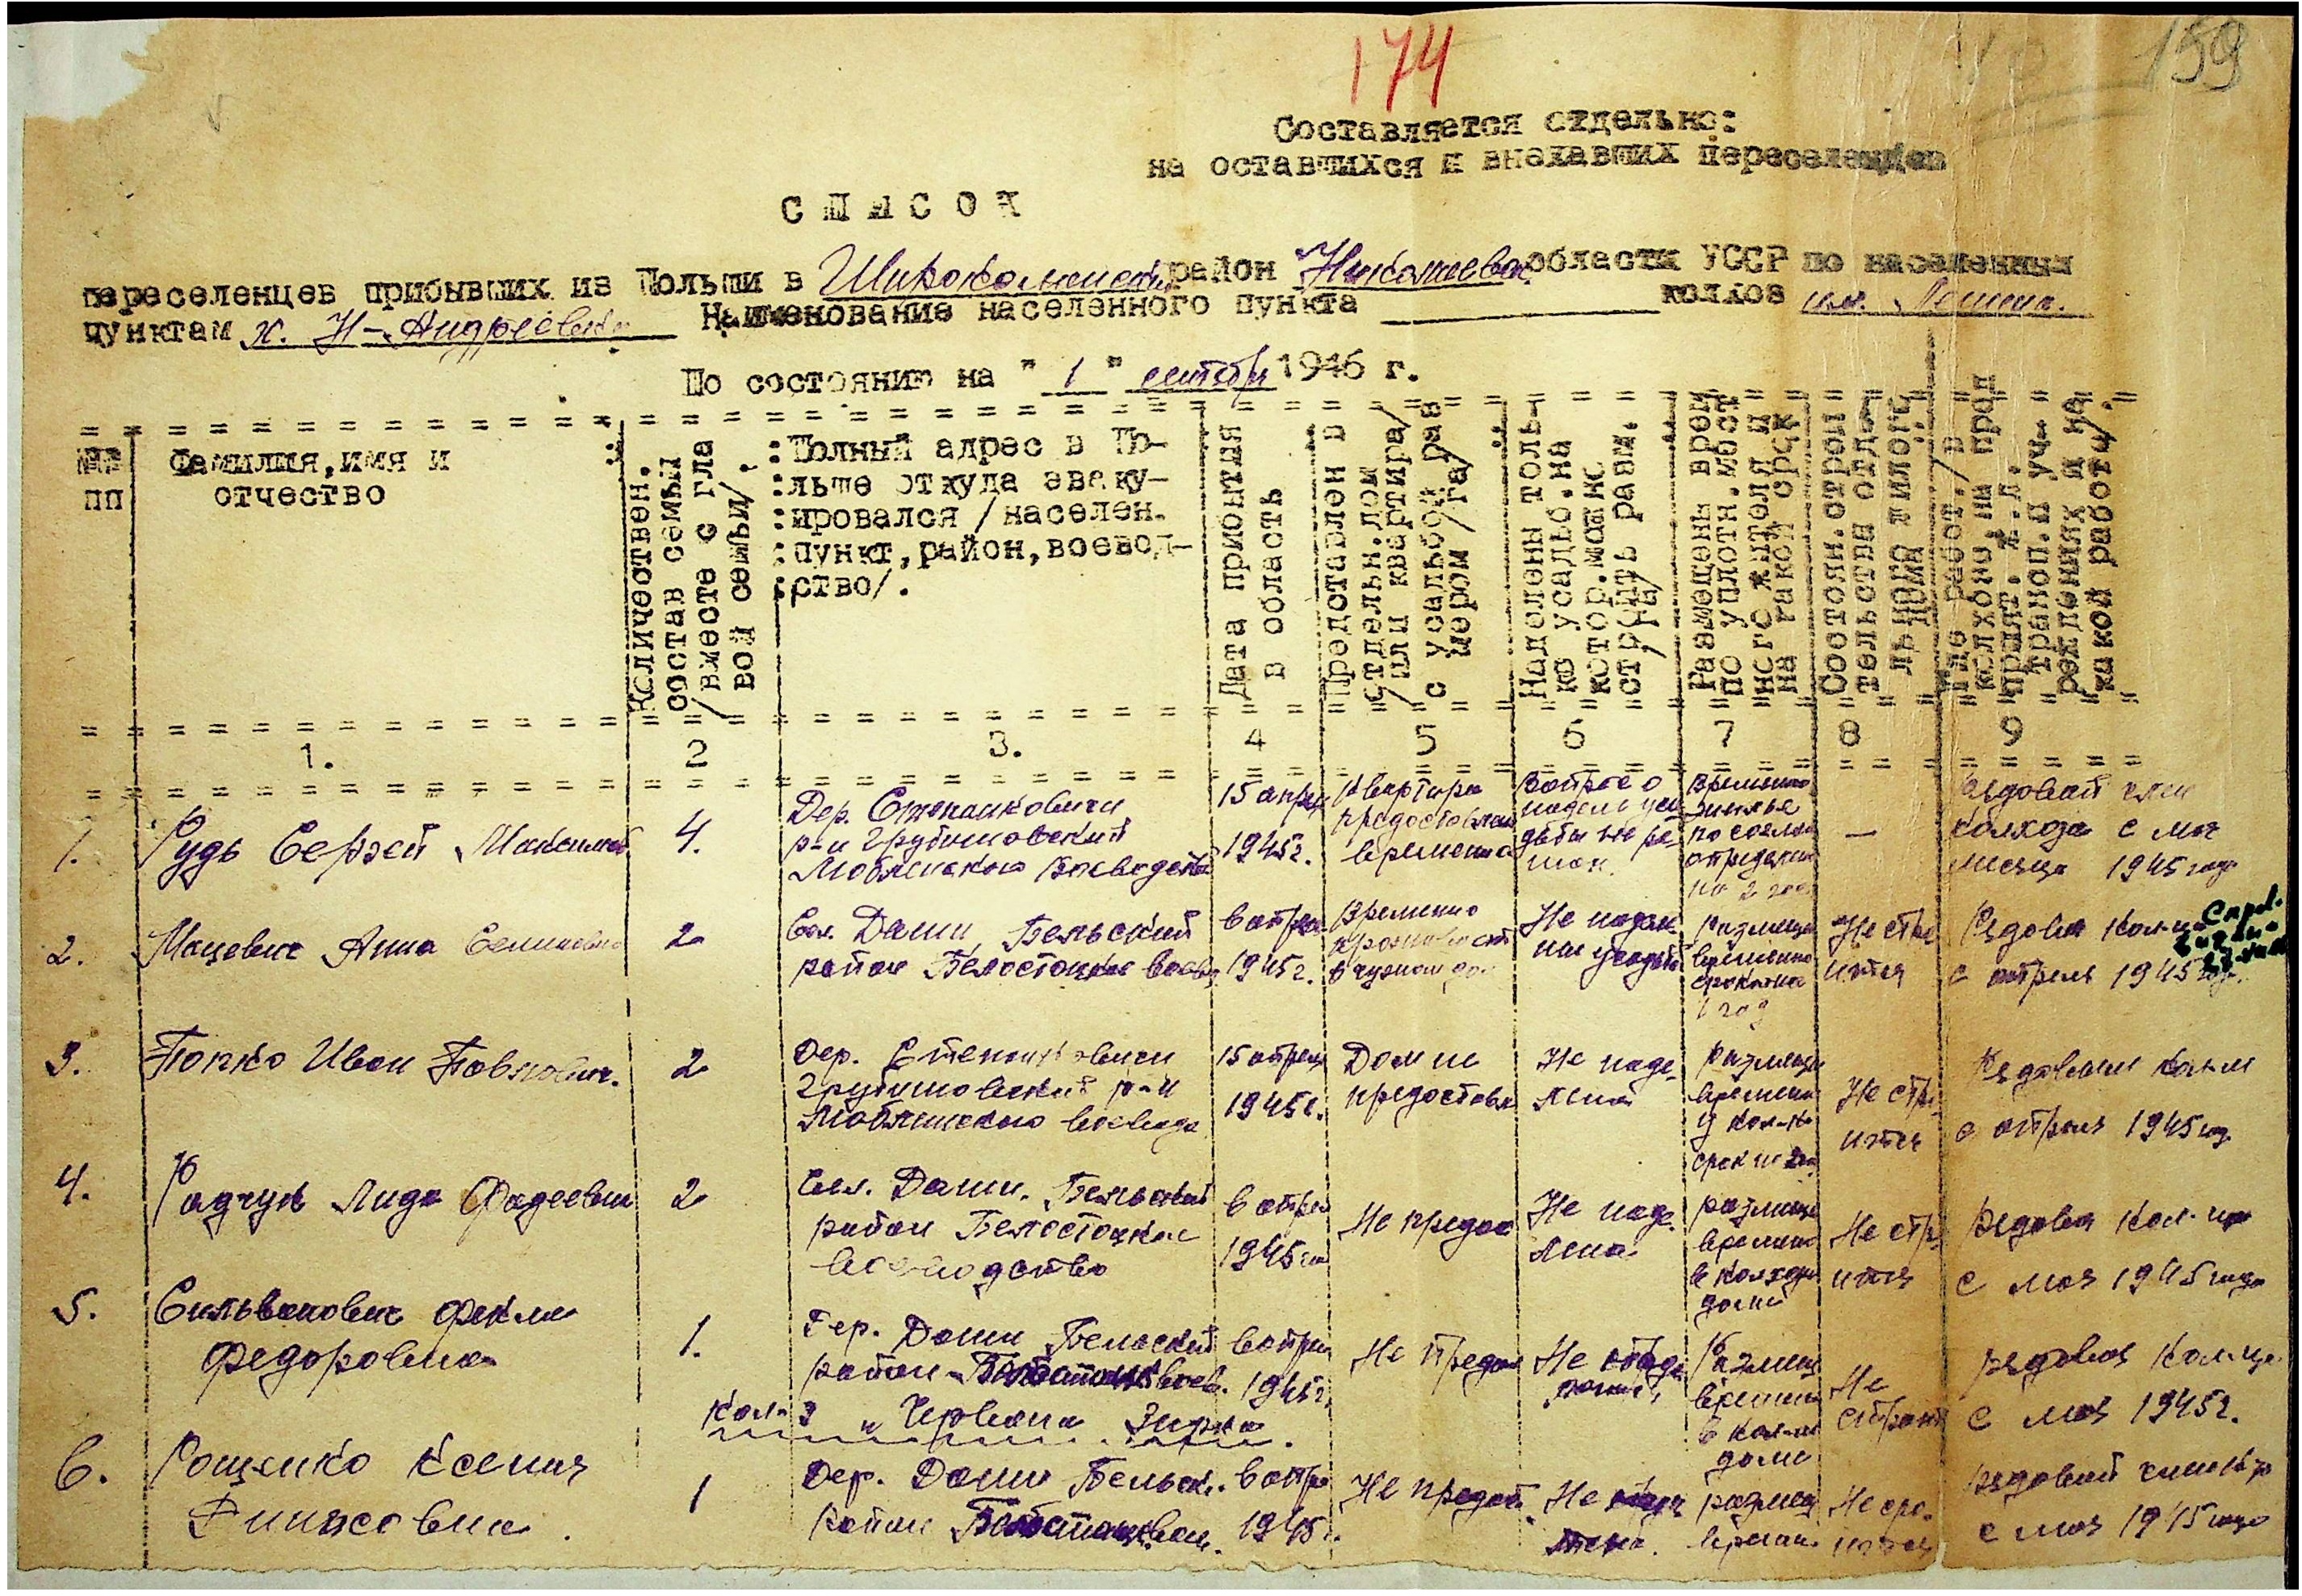 174
159
Составляется отдельно:
на оставшихся и выехавших переселенцев
СПИСОК
переселенцев прибывших из Польши в Широколанский район Николаевск области УССР по населенным
пунктам х. Н-Андреевка Наименование населенного пункта колхоз им. Ленина.
По состоянию на "1" сентября 1946 г.
№№ пп
Фамилия, имя и отчество
Количествен. состав семьи /вместе с гла вой семьи/.
:Полный адрес в По-
:льше откуда эваку-
:ировался /населен.
:пункт, район, воевод-
:ство/.
Дата прибытия в область
Предоставлен в отдельн. дом /или квартира/ с усадьбой раз мером /га/
Наделены толь- ко усадьб. на котор. можно строить разм. /га/
Размещены врем по уплотн. мест ного жителя и на какой срок
Состоян. строи тельства отде льного жилого дома
Где работ. /в колхозе, на пред прият. ж.д. трансп. и уч- реждениях и на какой работе/.
1. 2 3. 4 5 6 7 8 9
1. Рудь Сергей Максимов 4. Дер. Степанковичи р-н Грубишовский Люблинского воеводства 15 апрел 1945г. Квартира предоставлен временно Вопрос о наделе уса дьбы не ре- шен. Временно жилье по соглаш определен на 2 года — Рядовой член колхоза с мая месяца 1945 года
2. Мацевич Анна Семиновна 2 Сел. Даши Бельский район Белостоцкое воевод 6 апрел 1945г. Временно в чужом дом Не надел на усадьба Размеще временно срок на 1 год Не стро ится Рядовая кол-ца с апреля 1945 год.
3. Попко Иван Павлович. 2 Дер. Степанковичи Грубишовский р-н Люблинского воевода 15 апрел 1945г. Дом не предоставл Не наде- лена Размеще времени у кол-ка срок на 2 год Не стро- ится Рядовым кол-м с апреля 1945 год
4. Радчук Лида Фадеевна 2 Сел. Даши. Бельский район Белостоцкое воеводство 6 апрел 1945 год Не предос Не наде- лена размеще времени в колхозн доме Не стро ится Рядовая кол-ца с мая 1945 года
5. Сильванович Фекла Федоровна 1. Дер. Даши Бельский район Белостоцк воев. 6 апрел 1945г. Не предос Не наде лена Размещ времени в кол-м доме Не строит рядовая кол-ца с мая 1945г.
Кол-з "Червона Зирка.
6. Рощенко Ксения 1 Дер. Даши Бельск. район Белостоцк воев. 6 апре 1945г. Не предост. Не наде лена. размещ времен. Не стро- ится рядовой член к-за с мая 1945 года